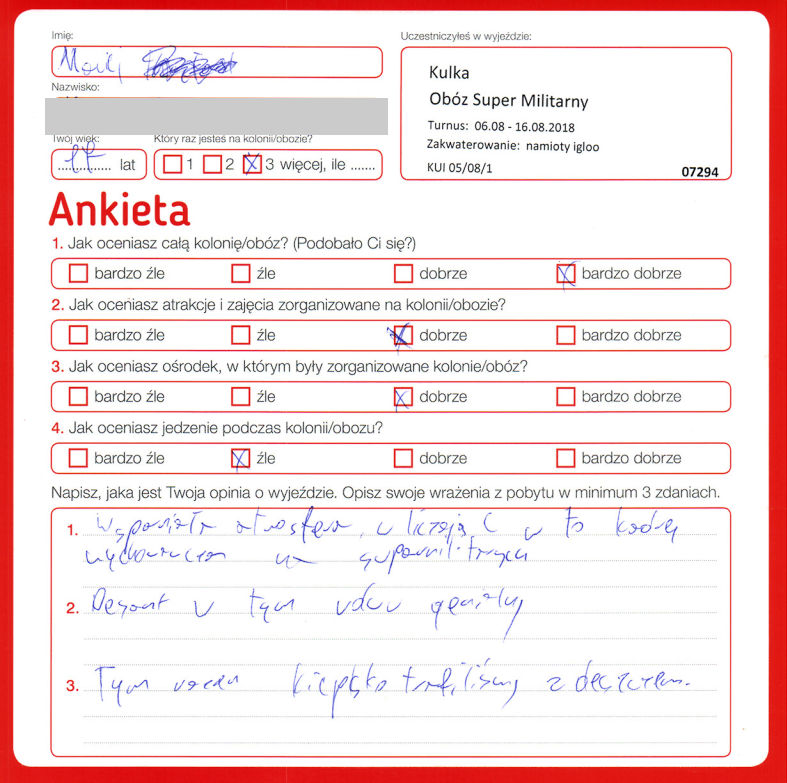 Imię:
Maciej
Nazwisko:
Twój wiek:
17 lat
Który raz jesteś na kolonii/obozie?
1 2 3 więcej, ile .......
Uczestniczyłeś w wyjeździe:
Kulka
Obóz Super Militarny
Turnus: 06.08 - 16.08.2018
Zakwaterowanie: namioty igloo
KUI 05/08/1 07294
Ankieta
1. Jak oceniasz całą kolonię/obóz? (Podobało Ci się?)
bardzo źle źle dobrze bardzo dobrze
2. Jak oceniasz atrakcje i zajęcia zorganizowane na kolonii/obozie?
bardzo źle źle dobrze bardzo dobrze
3. Jak oceniasz ośrodek, w którym były zorganizowane kolonie/obóz?
bardzo źle źle dobrze bardzo dobrze
4. Jak oceniasz jedzenie podczas kolonii/obozu?
bardzo źle źle dobrze bardzo dobrze
Napisz, jaka jest Twoja opinia o wyjeździe. Opisz swoje wrażenia z pobytu w minimum 3 zdaniach.
1. Wspaniała atmosfera, wliczając w to kadrę
wychowawcza na supermilitarnym
2. Desant w tym roku genialny
3. Tym razem kiepsko trafiliśmy z deszczem.